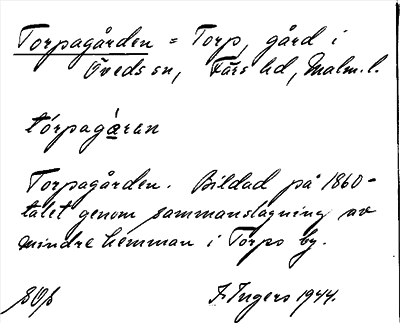 Torpagården = Torp, gård i
Öveds sn, Färs hd, Malm. l.
tórpagá̱ran
Torpagården. Bildad på 1860-
talet genom sammanslagning av
mindre hemman i Torps by.
I. Ingers 1944.